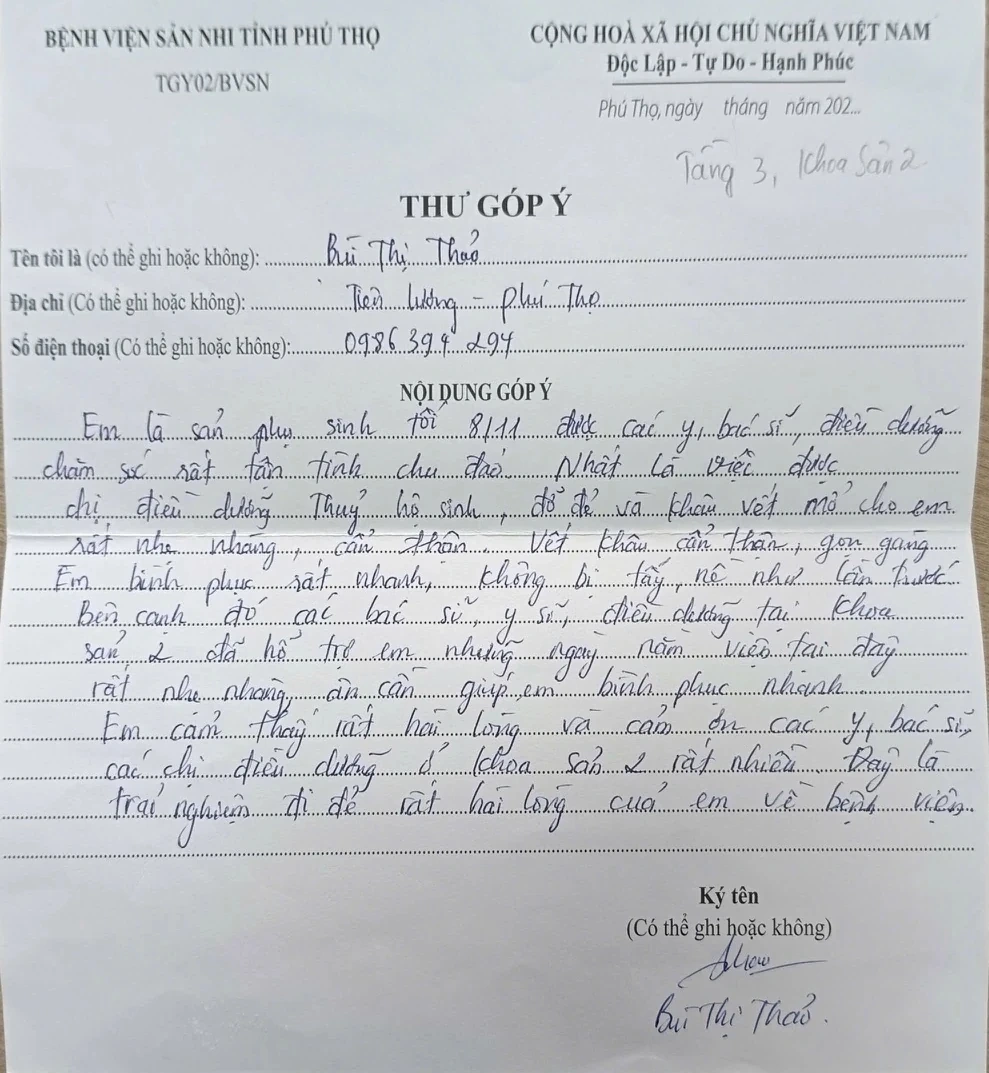 BỆNH VIỆN SẢN NHI TỈNH PHÚ THỌ
TGY02/BVSN
CỘNG HOÀ XÃ HỘI CHỦ NGHĨA VIỆT NAM
Độc Lập - Tự Do - Hạnh Phúc
Phú Thọ, ngày tháng năm 202...
Tầng 3, Khoa Sản 2
THƯ GÓP Ý
Tên tôi là (có thể ghi hoặc không): Bùi Thị Thảo
Địa chỉ (Có thể ghi hoặc không): Tiên Lương - Phú Thọ
Số điện thoại (Có thể ghi hoặc không): 0986 394 294
NỘI DUNG GÓP Ý
Em là sản phụ sinh tối 8/11 được các y, bác sĩ, điều dưỡng
chăm sóc rất tân tình chu đáo. Nhất là việc được
chị điều dưỡng Thuỷ hộ sinh, đỡ đẻ và khâu vết mổ cho em
rất nhẹ nhàng, cẩn thận. Vết khâu cẩn thận, gọn gàng
Em bình phục rất nhanh, không bị tấy, nề như lần trước
Bên cạnh đó các bác sĩ, y sĩ, điều dưỡng tại khoa
sản 2 đã hỗ trợ em những ngày nằm viện tại đây
rất nhẹ nhàng, ân cần giúp em bình phục nhanh.
Em cảm thấy rất hài lòng và cảm ơn các y, bác sĩ,
các chị điều dưỡng ở khoa sản 2 rất nhiều. Đây là
trải nghiệm đi đẻ rất hài lòng của em về bệnh viện.
Ký tên
(Có thể ghi hoặc không)
Bùi Thị Thảo.